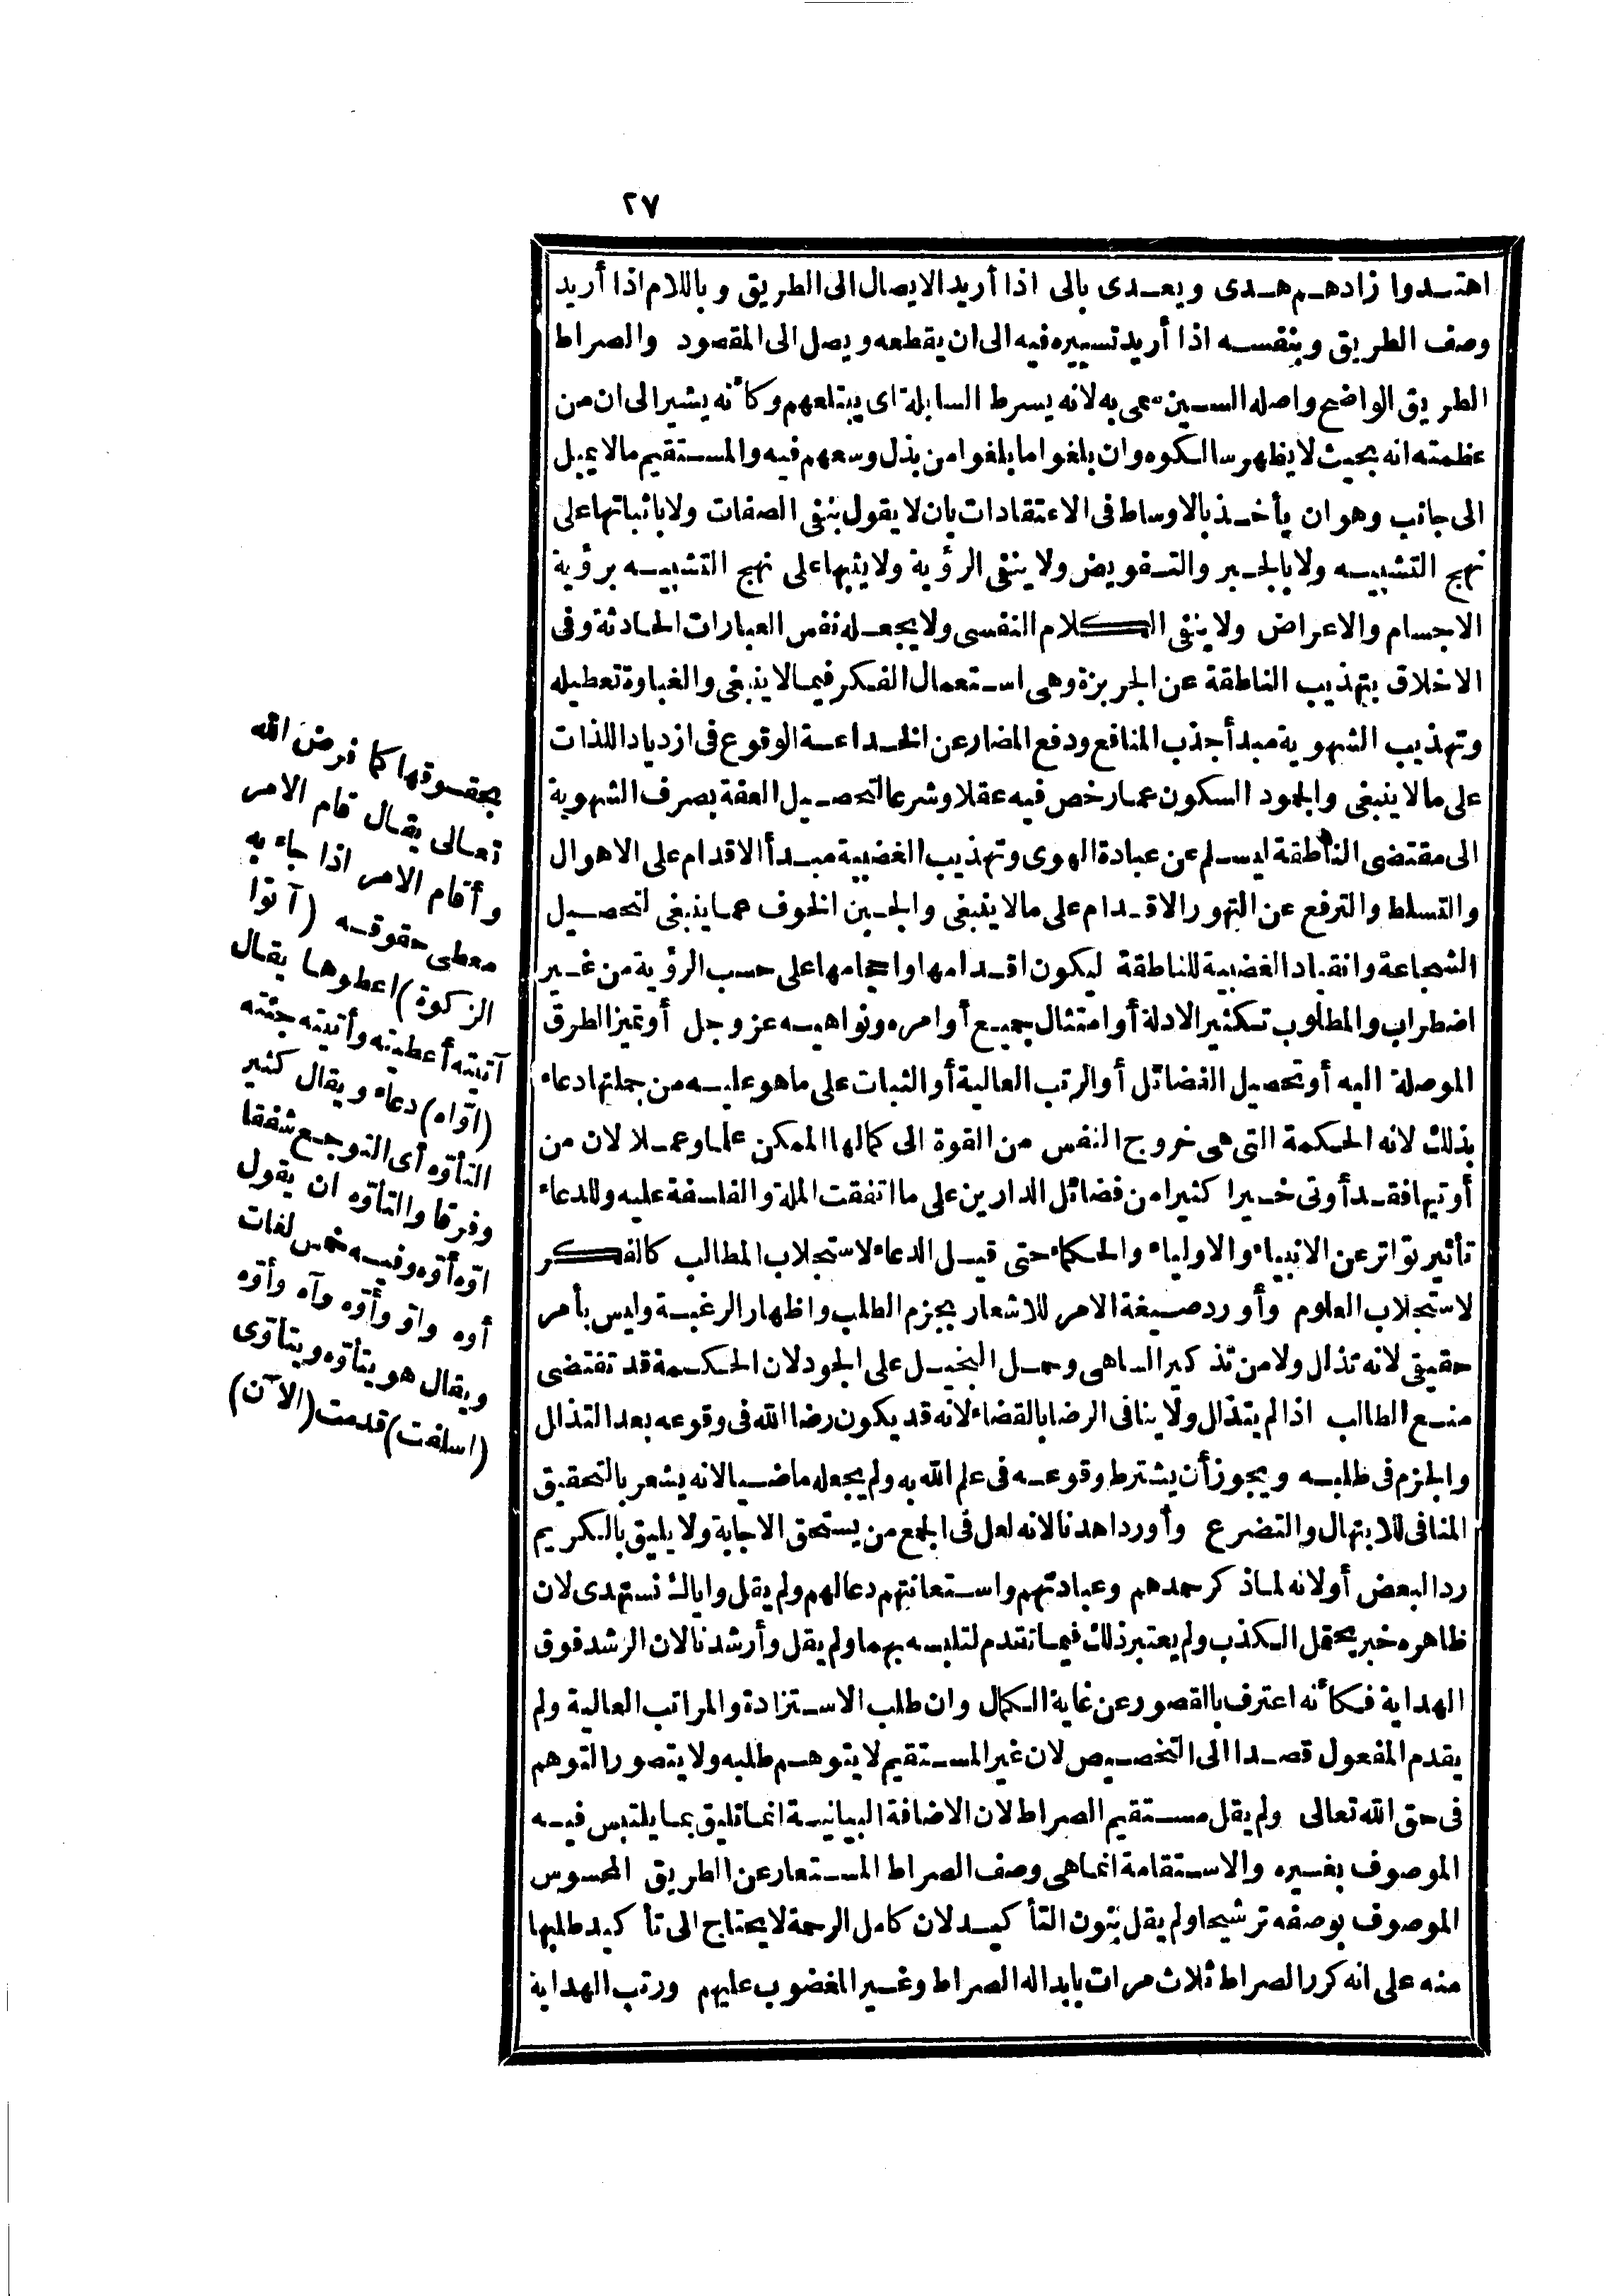 ٢٧
اهتدوا زادهم هدى ويعدى بالى اذا أريد الايصال الى الطريق وباللام اذا أريد
وصف الطريق وبنفسه اذا أريد تسييره فيه الى ان يقطعه ويصل الى المقصود والصراط
الطريق الواضح واصله السين سمى به لانه يسرط السابلة اى يبتلعهم وكأنه يشير الى ان من
عظمته انه بحيث لا يظهر سالكوه وان بلغوا ما بلغوا من بذل وسعهم فيه والمستقيم ما لا يميل
الى جانب وهو ان يأخذ بالاوساط فى الاعتقادات بان لا يقول بنفى الصفات ولا باثباتها على
نهج التشبيه ولا بالجبر والتفويض ولا ينفى الرؤية ولا يثبتها على نهج التشبيه برؤية
الاجسام والاعراض ولا ينفى الكلام النفسى ولا يجعله نفس العبارات الحادثة وفى
الاخلاق بتهذيب الناطقة عن الجربزة وهى استعمال الفكر فيما لا ينبغى والغباوة تعطيله
وتهذيب الشهوية مبدأ جذب المنافع ودفع المضار عن الخداعة الوقوع فى ازدياد اللذات
على ما لا ينبغى والجمود السكون عما رخص فيه عقلا وشرعا لتحصيل العفة بصرف الشهوية
الى مقتضى الناطقة ليسلم عن عبادة الهوى وتهذيب الغضبية مبدأ الاقدام على الاهوال
والتسلط والترفع عن التهور الاقدام على ما لا ينبغى والجبن الخوف عما ينبغى لتحصيل
الشجاعة وانقياد الغضبية للناطقة ليكون اقدامها واحجامها على حسب الرؤية من غير
اضطراب والمطلوب تكثير الادلة أو امتثال جميع أوامره ونواهيه عز وجل أو تميز الطرق
الموصلة اليه أو تحصيل الفضائل أو الرتب العالية أو الثبات على ما هو عليه من جملتها دعاء
بذلك لانه الحكمة التى هى خروج النفس من القوة الى كمالها الممكن علما وعملا لان من
أوتيها فقد أوتى خيرا كثيرا من فضائل الدارين على ما اتفقت الملة والفلسفة عليه وللدعاء
تأثير تواتر عن الانبياء والاولياء والحكماء حتى قيل الدعاء لاستجلاب المطالب كالفكر
لاستجلاب العلوم وأورد صيغة الامر للاشعار بجزم الطلب واظهار الرغبة وليس بأمر
حقيقى لانه تذلل ولا من تذكير الساهى وحمل البخيل على الجود لان الحكمة قد تقتضى
منع الطالب اذا لم يتذلل ولا ينافى الرضا بالقضاء لانه قد يكون رضا الله فى وقوعه بعد التذلل
والجزم فى طلبه ويجوز أن يشترط وقوعه فى علم الله به ولم يجعله ماضيا لانه يشعر بالتحقيق
المنافى للابتهال والتضرع وأورد اهدنا لانه لعل فى الجمع من يستحق الاجابة ولا يليق بالكريم
رد البعض أو لانه لما ذكر حمدهم وعبادتهم واستعانتهم دعا لهم ولم يقل واياك نستهدى لان
ظاهره خبر يحتمل الكذب ولم يعتبر ذلك فيما تقدم لتلبسه بهما ولم يقل وأرشدنا لان الرشد فوق
الهداية فكأنه اعترف بالقصور عن غاية الكمال وان طلب الاستزادة والمراتب العالية ولم
يقدم المفعول قصدا الى التخصيص لان غير المستقيم لا يتوهم طلبه ولا يتصور التوهم
فى حق الله تعالى ولم يقل مستقيم الصراط لان الاضافة البيانية انما تليق بما يلتبس فيه
الموصوف بغيره والاستقامة انما هى وصف الصراط المستعار عن الطريق المحسوس
الموصوف بوصفه ترشيحا ولم يقل بنون التأكيد لان كامل الرحمة لا يحتاج الى تأكيد طلبها
منه على انه كرر الصراط ثلاث مرات بابداله الصراط وغير المغضوب عليهم ورتب الهداية
بحقوقها كما فرض الله
تعالى يقال قام الامر
وأقام الامر اذا جاء به
معطى حقوقه (آتوا
الزكوة) اعطوها يقال
آتيته أعطيته وأتيته جئته
(اوّاه) دعاء ويقال كثير
التأوّه أى التوجع شفقا
وفرقا والتأوّه ان يقول
اوّه أوّه وفيه خمس لغات
أوه واوّ وأوّه وآه وأوّه
ويقال هو يتأوّه ويتأوّى
(اسلفت) قدمت (الآن)